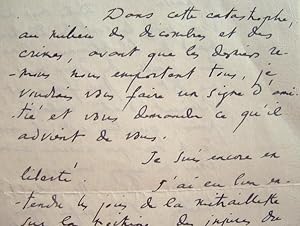 Dans cette catastrophe,
au milieu des décombres et des
crimes, avant que les derniers re-
-mous nous emportent tous, je
voudrais vous faire un signe d'ami-
-tié et vous demander ce qu'il
advient de vous.
Je suis encore en
liberté. J'ai eu beau en-
-tendre les jours de la mitraillette
sur la poitrine, des injures de